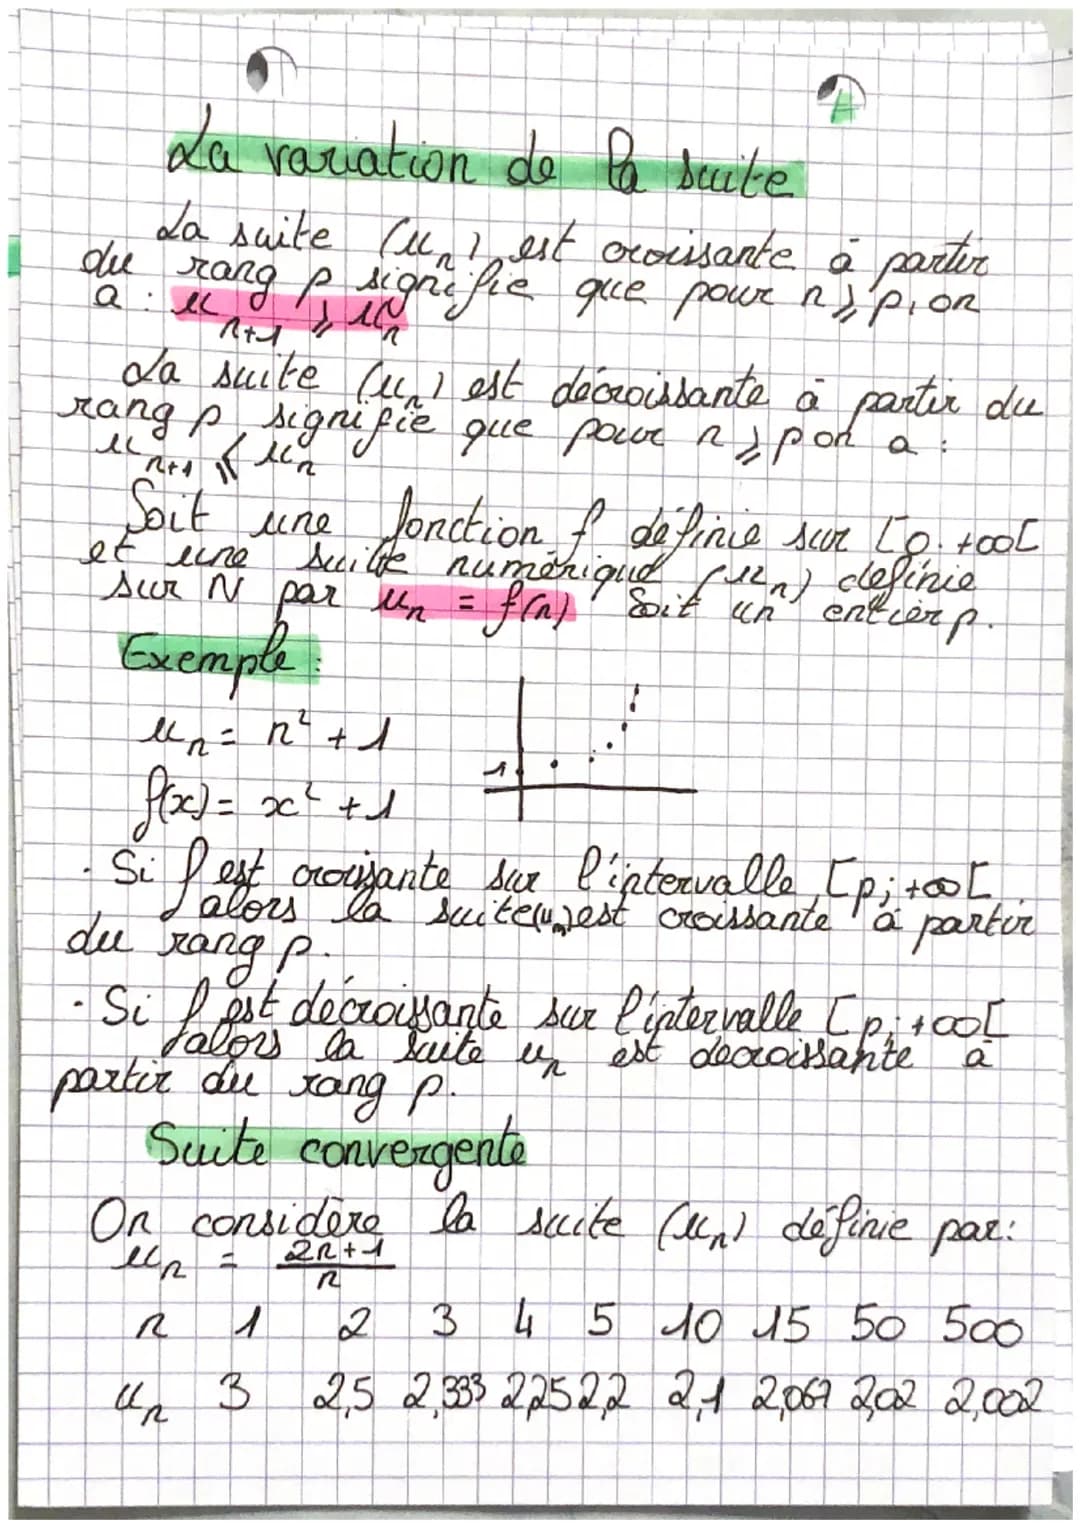 La variation de la suite
La suite (uₙ) est croissante à partir
du rang p signifie que pour n ⩾ p, on
a : uₙ₊₁ ⩾ uₙ
La suite (uₙ) est décroissante à partir du
rang p signifie que pour n ⩾ p on a :
uₙ₊₁ ⩽ uₙ
Soit une fonction f définie sur [0. +∞[
et une suite numérique (uₙ) definie
sur N par uₙ = f(n) Soit un entier p.
Exemple :
uₙ = n² + 1
f(x) = x² + 1
1
· Si f est croissante sur l'intervalle [p; +∞[
alors la suite (uₙ) est croissante à partir
du rang p.
· Si f est décroissante sur l'intervalle [p; +∞[
alors la suite uₙ est décroissante à
partir du rang p.
Suite convergente
On considère la suite (uₙ) définie par:
uₙ = 2n+1/n
n 1 2 3 4 5 10 15 50 500
uₙ 3 2,5 2,333 2,25 2,2 2,1 2,067 2,02 2,002